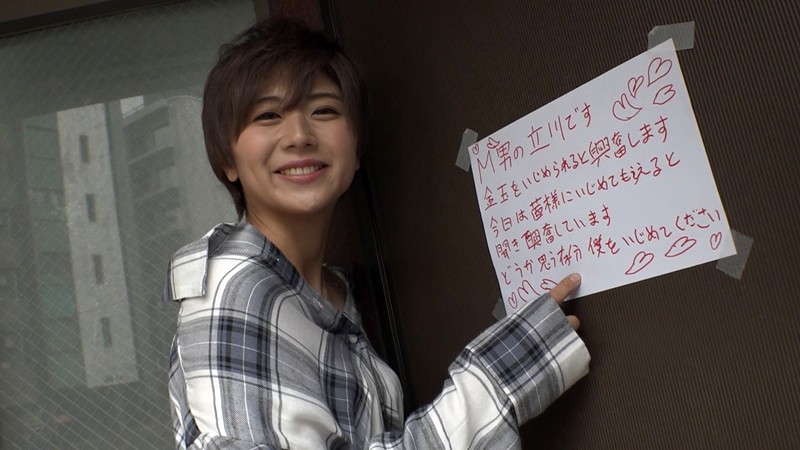 M男の立川です
金玉をいじめられると興奮します
今日は皆様にいじめてもらえると
聞き興奮しています
どうか思う存分僕をいじめてください